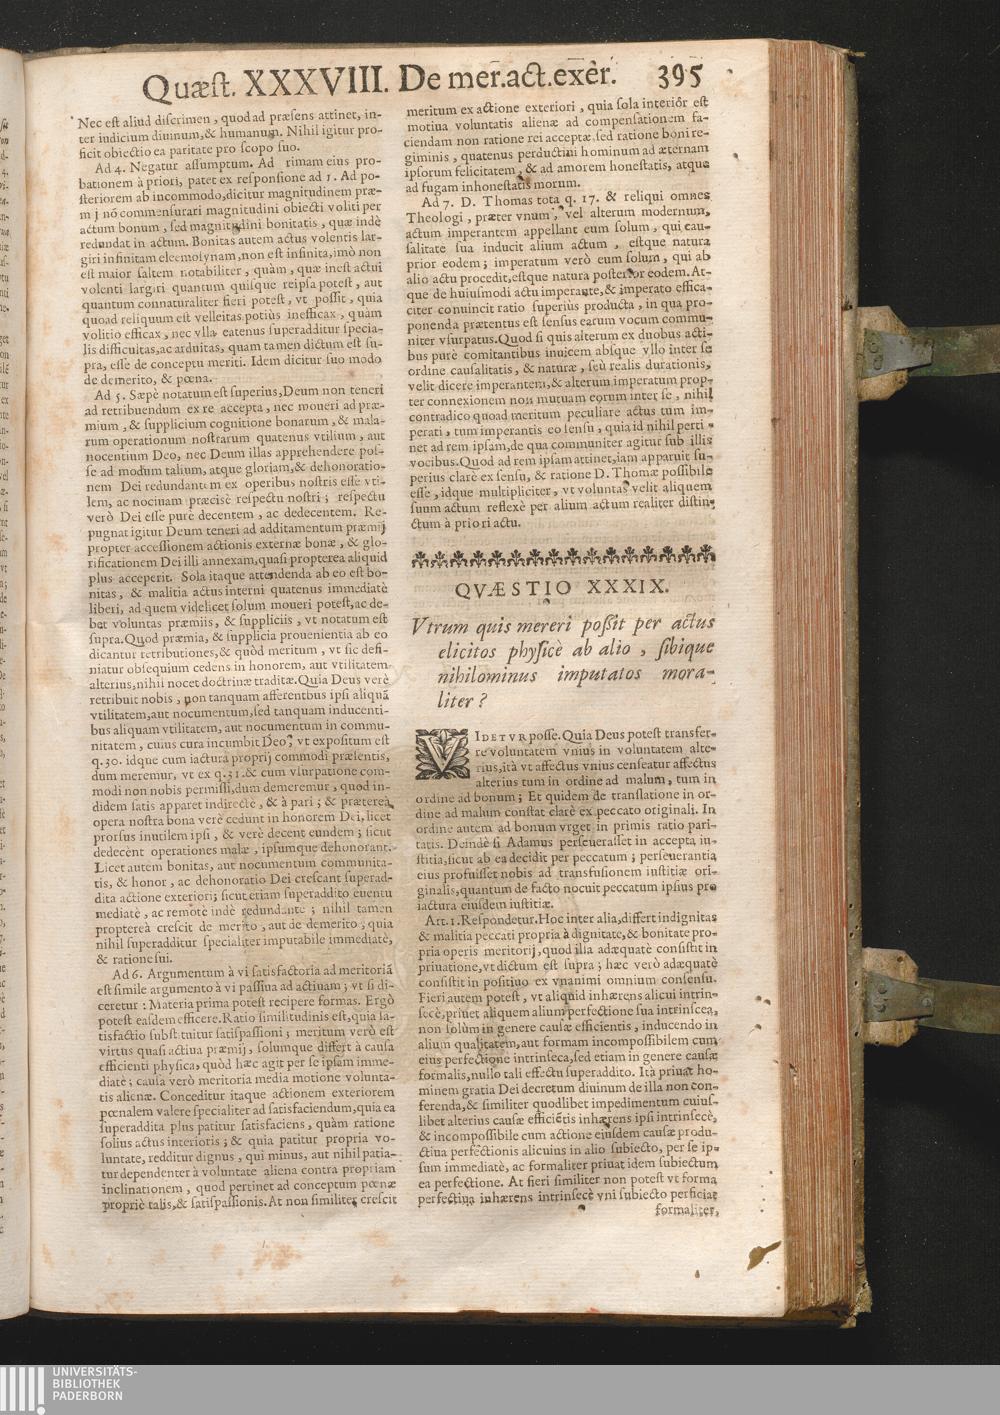 Quæst. XXXVIII. De mer̃. act. exer̀. 395
Nec est aliud discrimen, quod ad præsens attinet, in-
ter iudicium diuinum, & humanum. Nihil igitur pro-
ficit obiectio ea paritate pro scopo suo.
Ad 4. Negatur assumptum. Ad rimam eius pro-
bationem à priori, patet ex responsione ad 1. Ad po-
steriorem ab incommodo, dicitur magnitudinem præ-
m j nō commensurari magnitudini obiecti voliti per
actum bonum, sed magnitudini bonitatis, quæ indè
redundat in actum. Bonitas autem actus volentis lar-
giri infinitam eleemosynam, non est infinita, imò non
est maior saltem notabiliter, quàm, quæ inest actui
volenti largiri quantum quisque reipsa potest, aut
quantum connaturaliter fieri potest, vt possit, quia
quoad reliquum est velleitas potiùs inefficax, quàm
volitio efficax, nec vlla eatenus superadditur specia-
lis difficultas, ac arduitas, quam tamen dictum est su-
pra, esse de conceptu meriti. Idem dicitur suo modo
de demerito, & pœna.
Ad 5. Sæpè notatum est superius, Deum non teneri
ad retribuendum ex re accepta, nec moueri ad præ-
mium, & supplicium cognitione bonarum, & mala-
rum operationum nostrarum quatenus vtilium, aut
nocentium Deo, nec Deum illas apprehendere pos-
se ad modum talium, atque gloriam, & dehonoratio-
nem Dei redundantem ex operibus nostris esse vti-
lem, ac nociuam præcisè respectu nostri; respectu
verò Dei esse purè decentem, ac dedecentem. Re-
pugnat igitur Deum teneri ad additamentum præmij
propter accessionem actionis externæ bonæ, & glo-
rificationem Dei illi annexam, quasi propterea aliquid
plus acceperit. Sola itaque attendenda ab eo est bo-
nitas, & malitia actus interni quatenus immediatè
liberi, ad quem videlicet solum moueri potest, ac de-
bet voluntas præmiis, & suppliciis, vt notatum est
supra. Quod præmia, & supplicia prouenientia ab eo
dicantur retributiones, & quòd meritum, vt sic defi-
niatur obsequium cedens in honorem, aut vtilitatem
alterius, nihil nocet doctrinæ traditæ. Quia Deus verè
retribuit nobis, non tanquam afferentibus ipsi aliquā
vtilitatem, aut nocumentum, sed tanquam inducenti-
bus aliquam vtilitatem, aut nocumentum in commu-
nitatem, cuius cura incumbit Deo, vt expositum est
q. 30. idque cum iactura proprij commodi præsentis,
dum meremur, vt ex q. 31. & cum vsurpatione com-
modi non nobis permissi, dum demeremur, quod in-
didem satis apparet indirectè, & à pari; & præterea
opera nostra bona verè cedunt in honorem Dei, licet
prorsus inutilem ipsi, & verè decent eundem; sicut
dedecent operationes malæ, ipsumque dehonorant.
Licet autem bonitas, aut nocumentum communita-
tis, & honor, ac dehonoratio Dei crescant superad-
dita actione exteriori; sicut etiam superaddito euentu
mediatè, ac remotè indè redundante; nihil tamen
proptereà crescit de merito, aut de demerito, quia
nihil superadditur specialiter imputabile immediatè,
& ratione sui.
Ad 6. Argumentum à vi satisfactoria ad meritoriā
est simile argumento à vi passiua ad actiuam; vt si di-
ceretur: Materia prima potest recipere formas. Ergò
potest easdem efficere. Ratio similitudinis est, quia sa-
tisfactio substituitur satispassioni; meritum verò est
virtus quasi actiua præmij, solumque differt à causa
efficienti physica, quòd hæc agit per se ipsam imme-
diatè; causa verò meritoria media motione volunta-
tis alienæ. Conceditur itaque actionem exteriorem
pœnalem valere specialiter ad satisfaciendum, quia ea
superaddita plus patitur satisfaciens, quàm ratione
solius actus interioris; & quia patitur propria vo-
luntate, redditur dignus, qui minus, aut nihil patia-
tur dependenter à voluntate aliena contra propriam
inclinationem, quod pertinet ad conceptum pœnæ
propriè talis, & satispassionis. At non similiter crescit
meritum ex actione exteriori, quia sola interiôr est
motiua voluntatis alienæ ad compensationem fa-
ciendam non ratione rei acceptæ, sed ratione boni re-
giminis, quatenus perductini hominum ad æternam
ipsorum felicitatem, & ad amorem honestatis, atque
ad fugam inhonestatis morum.
Ad 7. D. Thomas tota q. 17. & reliqui omnes
Theologi, præter vnum, vel alterum modernum,
actum imperantem appellant eum solum, qui cau-
salitate sua inducit alium actum, estque natura
prior eodem; imperatum verò eum solum, qui ab
alio actu procedit, estque natura posterior eodem. At-
que de huiusmodi actu imperante, & imperato effica-
citer conuincit ratio superiùs producta, in qua pro-
ponenda prætentus est sensus earum vocum commu-
niter vsurpatus. Quod si quis alterum ex duobus acti-
bus purè comitantibus inuicem absque vllo inter se
ordine causalitatis, & naturæ, seu realis durationis,
velit dicere imperantem, & alterum imperatum prop-
ter connexionem non mutuam eorum inter se, nihil
contradico quoad meritum peculiare actus tum im-
perati, tum imperantis eo sensu, quia id nihil perti-
net ad rem ipsam, de qua communiter agitur sub illis
vocibus. Quod ad rem ipsam attinet, iam apparuit su-
perius clarè ex sensu, & ratione D. Thomæ possibile
esse, idque multipliciter, vt voluntas velit aliquem
suum actum reflexè per alium actum realiter distin-
ctum à priori actu.
QVÆSTIO XXXIX.
Vtrum quis mereri poßit per actus
elicitos physicè ab alio, sibique
nihilominus imputatos mora-
liter?
VIDETVR posse. Quia Deus potest transfer-
re voluntatem vnius in voluntatem alte-
rius, ità vt affectus vnius censeatur affectus
alterius tum in ordine ad malum, tum in
ordine ad bonum; Et quidem de translatione in or-
dine ad malum constat clarè ex peccato originali. In
ordine autem ad bonum vrget in primis ratio pari-
tatis. Deindè si Adamus perseuerasset in accepta iu-
stitia, sicut ab ea decidit per peccatum; perseuerantia
eius profuisset nobis ad transfusionem iustitiæ ori-
ginalis, quantum de facto nocuit peccatum ipsius pro
iactura eiusdem iustitiæ.
Art. 1. Respondetur. Hoc inter alia, differt indignitas
& malitia peccati propria à dignitate, & bonitate pro-
pria operis meritorij, quod illa adæquatè consistit in
priuatione, vt dictum est supra; hæc verò adæquatè
consistit in positiuo ex vnanimi omnium consensu.
Fieri autem potest, vt aliquid inhærens alicui intrin-
secè, priuet aliquem alium perfectione sua intrinseca,
non solùm in genere causæ efficientis, inducendo in
alium qualitatem, aut formam incompossibilem cum
eius perfectione intrinseca, sed etiam in genere causæ
formalis, nullo tali effectu superaddito. Ità priuat ho-
minem gratia Dei decretum diuinum de illa non con-
ferenda, & similiter quodlibet impedimentum cuius-
libet alterius causæ efficiētis inhærens ipsi intrinsecè,
& incompossibile cum actione eiusdem causæ produ-
ctiua perfectionis alicuius in alio subiecto, per se ip-
sum immediatè, ac formaliter priuat idem subiectum
ea perfectione. At fieri similiter non potest vt forma
perfectiua inhærens intrinsecè vni subiecto perficiat
formaliter,
UNIVERSITÄTS-
BIBLIOTHEK
PADERBORN